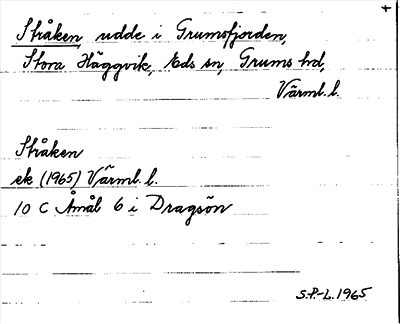 +
Stråken, udde i Grumsfjorden,
Stora Häggvik, Eds sn, Grums hd,
Värml. l.
Stråken
ek (1965) Värml. l.
10 C Åmål 6 i Dragsön
S.P-L. 1965